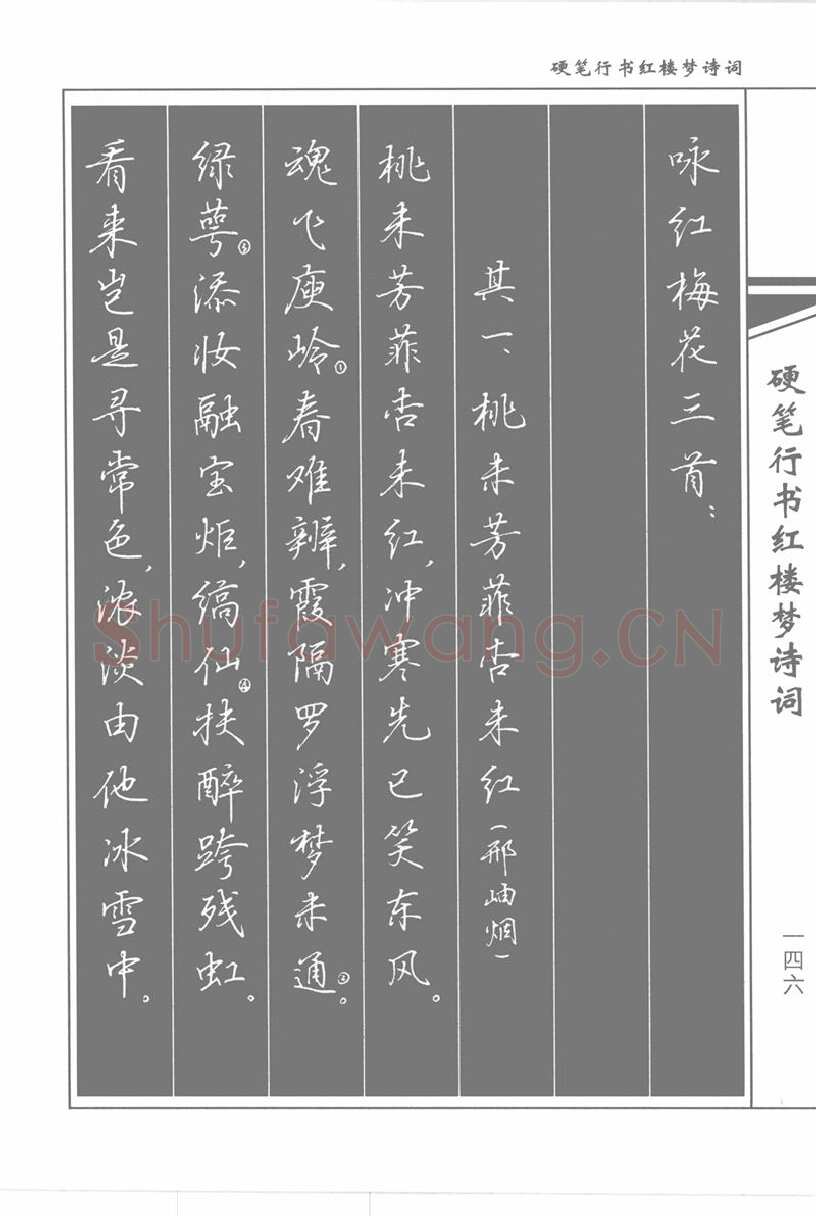 硬笔行书红楼梦诗词
硬笔行书红楼梦诗词
一四六
咏红梅花三首：
其一、桃未芳菲杏未红（邢岫烟）
桃未芳菲杏未红，冲寒先已笑东风。
魂飞庾岭①春难辨，霞隔罗浮梦未通②。
绿萼③添妆融宝炬，缟仙④扶醉跨残虹。
看来岂是寻常色，浓淡由他冰雪中。
Shufawang.CN